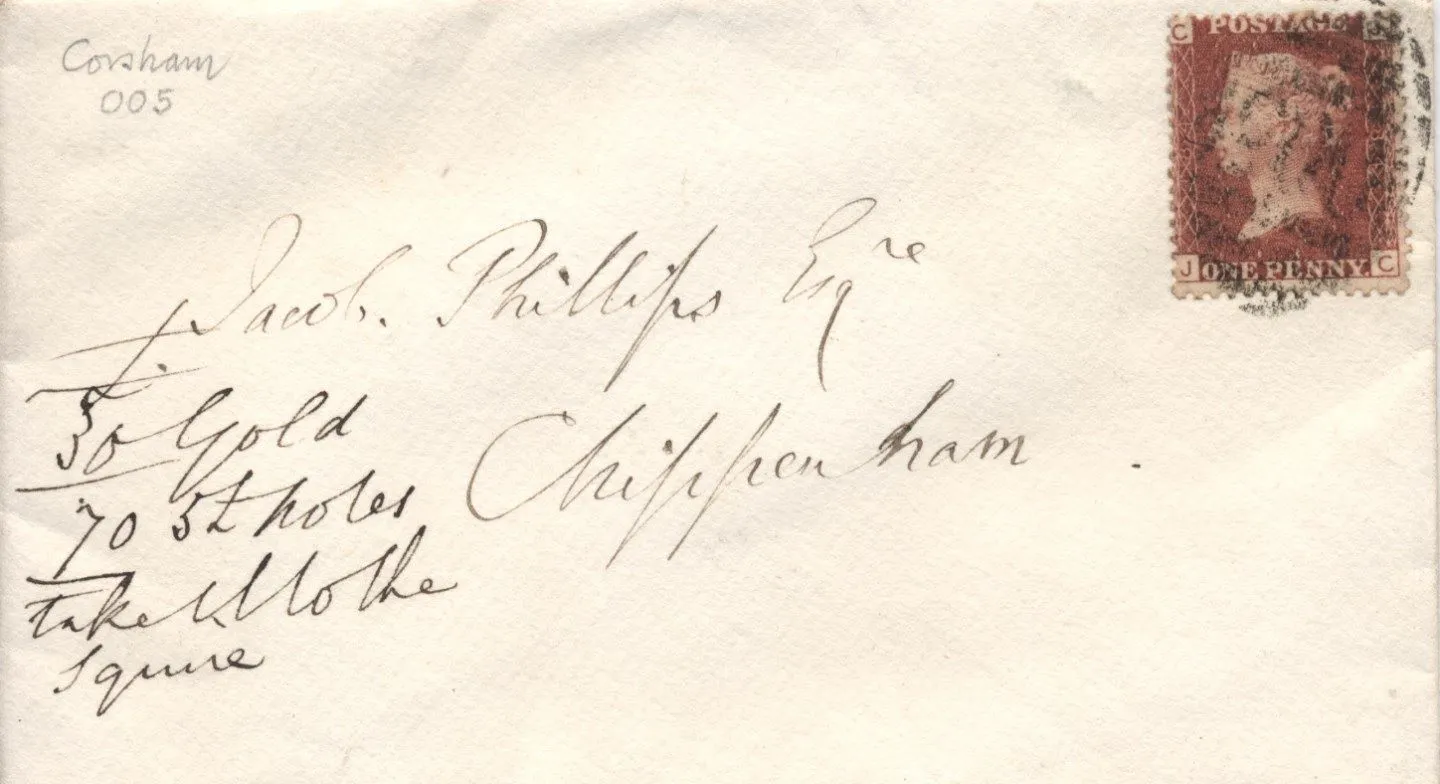 Corsham
005
C POSTAGE J
J ONE PENNY C
Jacob. Phillips Esqre
Chippenham.
50 Gold
70 5£ notes
take to the
Squire